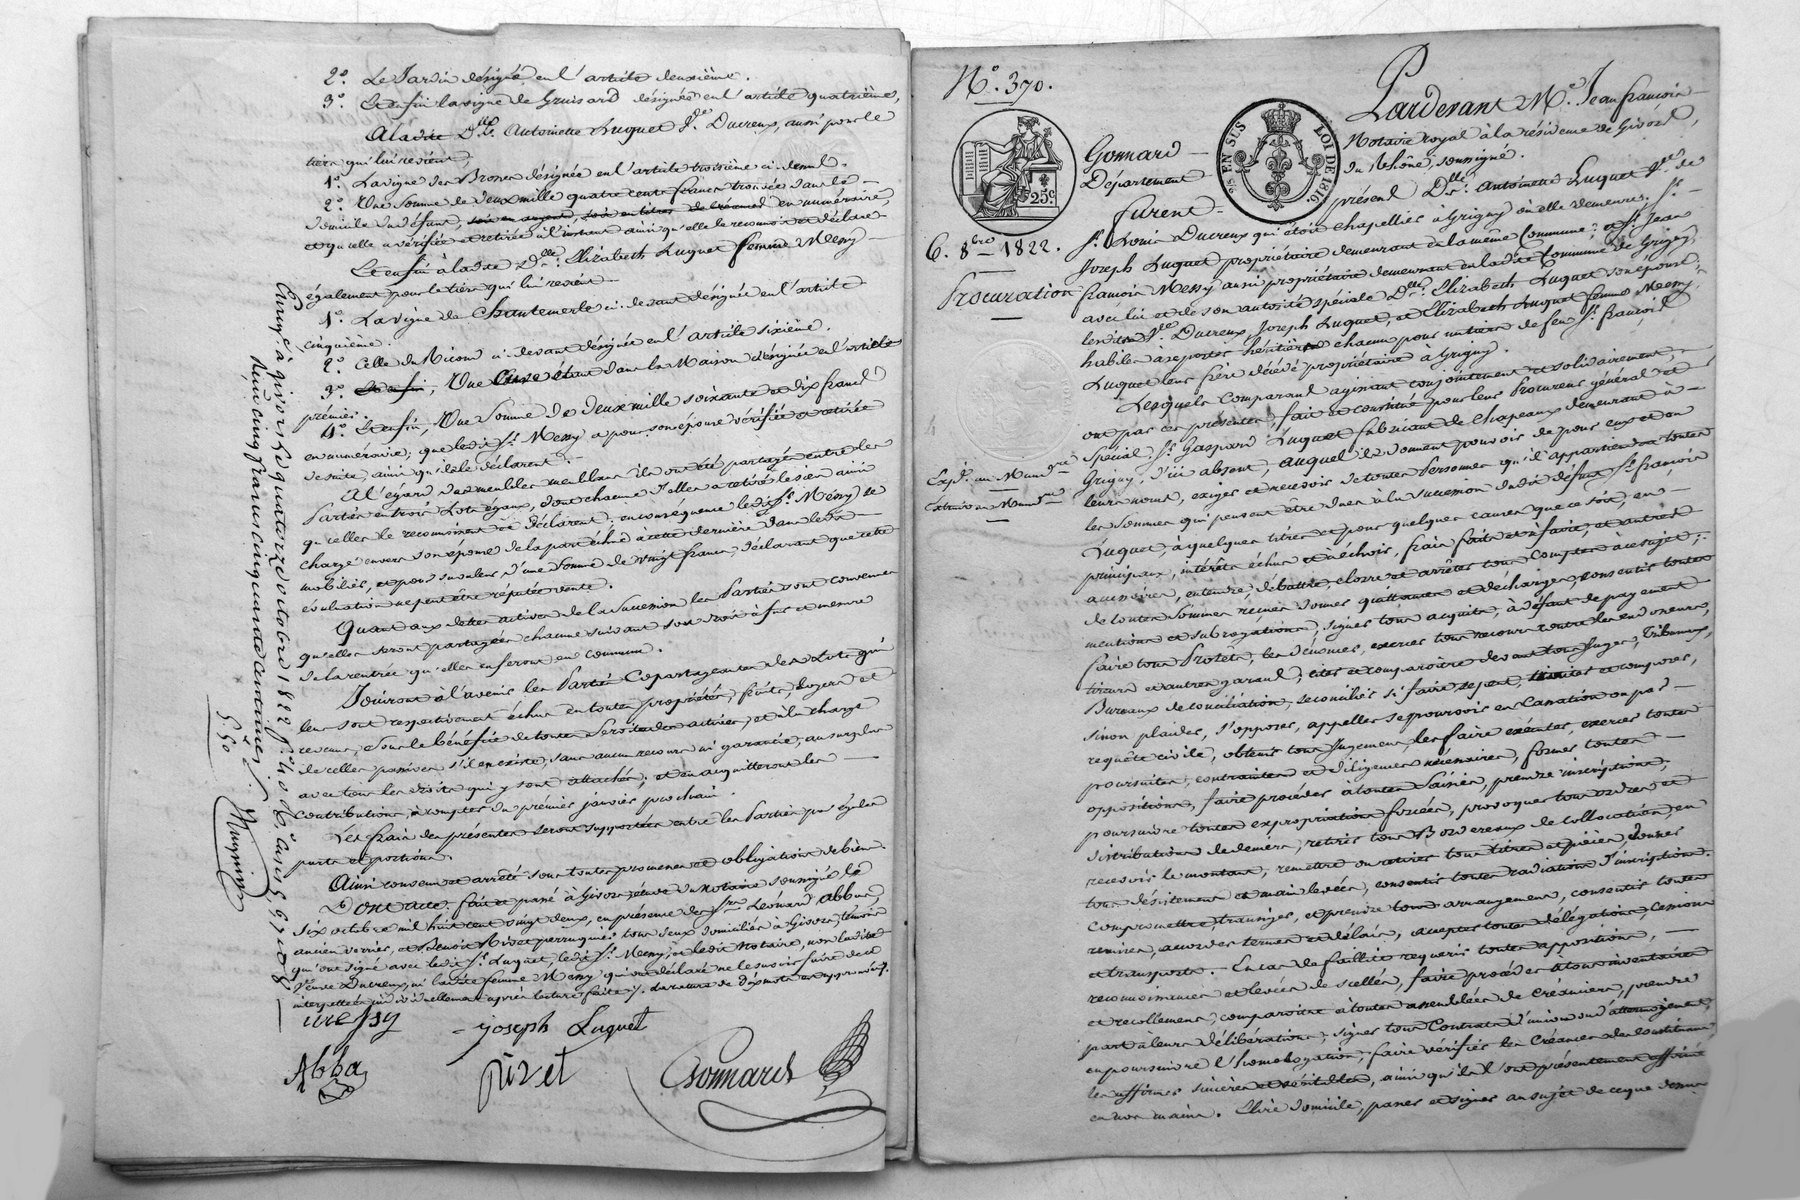 2.° Le Jardin désigné en l'article deuxième.
3.° Et enfin la vigne de Gruisard désignée en l'article quatrième,
A la dite D.lle Antoinette Luquet V.e Ducreux, aussi pour le
tiers qui lui revient,
1.° La vigne des Brosses désignée en l'article troisième ci-dessus.
2.° Une somme de deux mille quatre cents francs trouvée dans le
domicile du défunt, en numéraire,
et qu'elle a vérifiée et retirée à l'instant ainsi qu'elle le reconnoit et déclare
Et enfin à la dite D.lle Elizabeth Luquet femme Messy
également pour le tiers qui lui revient
1.° La vigne de Chantemerle ci-devant désignée en l'article
cinquième.
2.° Celle du ci-devant désignée en l'article sixième.
3.° Et enfin, Une Cuve étant dans la Maison désignée en l'article
premier.
4.° Et enfin, Une Somme de deux mille soixante et dix francs
en numéraire, que le dit S.r Messy a pour son épouse vérifiée et retirée
de suite, ainsi qu'ils le déclarent.
A l'égard des meubles meublans ils ont été partagés entre les
Parties en trois Lots égaux, dont chacune d'elles a retiré le sien ainsi
qu'elles le reconnoissent et déclarent; en conséquence le dit S.r Messy se
charge envers son épouse de la part échue à cette dernière dans le dit
mobilier, et pour sa valeur d'une somme de vingt francs, déclarant que cette
évaluation ne peut être réputée vente.
Quant aux dettes actives de la Succession les Parties sont convenues
qu'elles seront partagées chacune suivant son droit à fur et mesure
de la rentrée qu'elles en feront en commun.
Jouiront à l'avenir les Parties Copartageantes des Lots qui
leur sont respectivement échus en toutes propriétés, fruits, loyers et
revenus, sous le bénéfice de toutes Servitudes actives, et à la charge
de celles passives s'il en existe, sans aucun recours ni garantie, au surplus
avec tous les droits qui y sont attachés, et en acquitteront les
contributions, à compter du premier janvier prochain.
Les frais des présentes seront supportés entre les Parties par égales
parts et portions.
Ainsi convenu et arrêté sous toutes promesses et obligations de biens.
Dont acte: fait et passé à Givors, étude du Notaire soussigné le
six octobre mil huit cent vingt deux, en présence des S.rs Léonard Abba,
ancien verrier, et Benoit Rivet perruquier, tous deux domiciliés à Givors, témoins
qui ont signé avec le dit S.r Luquet, le dit S.r Messy, et le dit Notaire, non la dite
Veuve Ducreux, ni la dite femme Messy qui ont déclaré ne le savoir faire de ce
interpellées individuellement après lecture faite
messy
joseph Luquet
Abba
rivet
Gonnard
Enreg.é à givors le quatorze octobre 1822
Reçu cinq francs cinquante centimes
5,,50
N.° 370.
Pardevant M.e Jean françois
Gonnard
Notaire royal à la résidence de Givors,
Département
du Rhône, soussigné.
25 EN SUS LOI DE 1816
25c
Furent
présens D.lle Antoinette Luquet V.e de
6. 8bre 1822.
S.r Louis Ducreux qui étoit chapellier à Grigny où elle demeure, S.r
Joseph Luquet propriétaire demeurant en la même Commune; et S.r Jean
Procuration
françois Messy aussi propriétaire demeurant en la dite Commune de Grigny,
avec lui et de son autorité spéciale D.lle Elizabeth Luquet son épouse;
les dits V.e Ducreux, Joseph Luquet, et Elizabeth Luquet femme Messy,
habiles à se porter héritiers chacun pour un tiers de feu S.r françois
Luquet leur frère décédé propriétaire à Grigny.
Lesquels comparans agissant conjointement et solidairement,
ont par ces présentes, fait et constitué pour leur Procureur général et
spécial, S.r Gaspard Luquet fabricant de chapeaux demeurant à
Grigny, d'ici absent, auquel ils donnent pouvoir de pour eux et en
leurs noms, exiger et recevoir de toutes Personnes qu'il appartiendra toutes
les Sommes qui peuvent être dues à la succession du dit défunt S.r françois
Luquet, à quelques titres et pour quelques causes que ce soit, en
principaux, intérêts échus et à échoir, frais faits et à faire, et autres
accessoires, entendre, débattre, clorre et arrêter tous Comptes à ce sujet;
de toutes Sommes reçues donner quittances et décharges, consentir toutes
mentions et subrogations, signer tous acquits; à défaut de payement
faire tous Protêts, les dénoncer, exercer tous recours contre les endosseurs,
tireurs et autres garans, citer et comparoitre devant tous Juges, Tribunaux,
Bureaux de conciliation, se concilier si faire se peut, traiter et composer,
sinon plaider, s'opposer, appeller, se pourvoir en Cassation ou par
requête civile, obtenir tous Jugemens, les faire exécuter, exercer toutes
poursuites, contraintes et diligences nécessaires, former toutes
oppositions, faire procéder à toutes Saisies, prendre inscriptions,
poursuivre toutes expropriations forcées, provoquer tous ordres et
distributions de deniers, retirer tous Bordereaux de collocation, en
recevoir le montant, remettre ou retirer tous titres et pièces, donner
tous désistemens et main levées, consentir toutes radiations d'inscriptions,
compromettre, transiger, et prendre tous arrangemens, consentir toutes
remises, accorder termes et délais, accepter toutes délégations, Cessions
et transports. En cas de faillite requérir toutes appositions,
reconnoissances et levées de scellés, faire procéder à tous inventaires
et recollemens, comparoitre à toutes assemblées de Créanciers, prendre
part à leurs délibérations, signer tous Contrats d'union ou d'attermoyement,
en poursuivre l'homologation; faire vérifier les Créances des Constituans
les affirmer sincères et véritables, ainsi qu'ils l'ont présentement affirmé
en nos mains. Elire domicile, passer et signer au sujet de ce que dessus